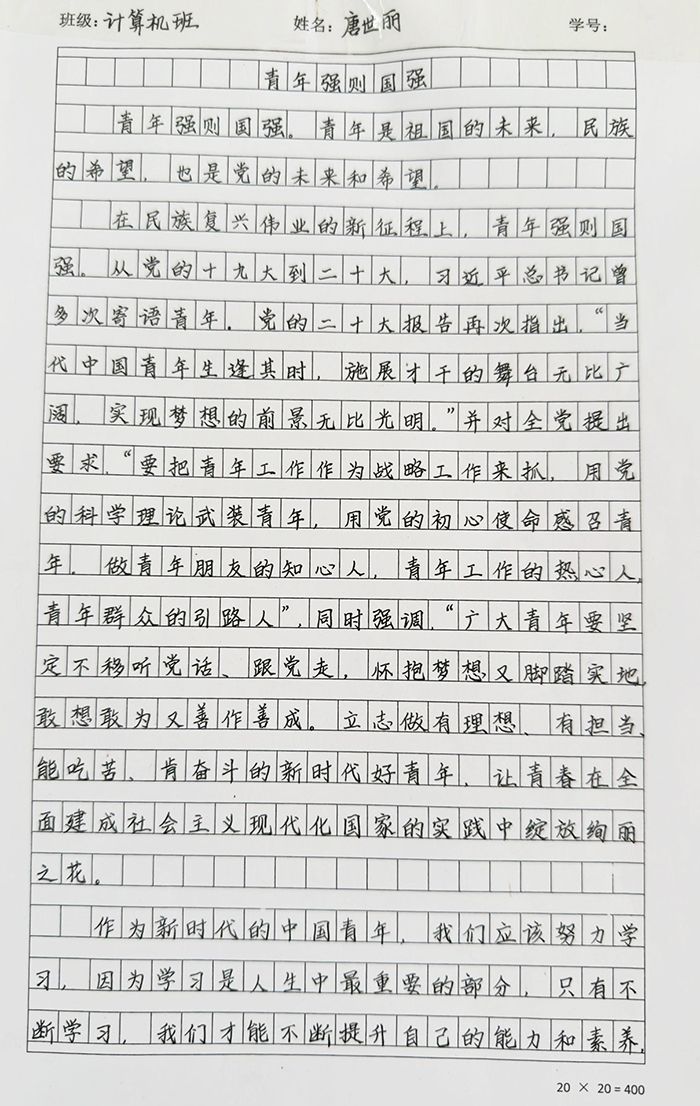 班级：计算机班 姓名：唐世丽 学号：
青年强则国强
青年强则国强。青年是祖国的未来，民族
的希望，也是党的未来和希望。
在民族复兴伟业的新征程上，青年强则国
强。从党的十九大到二十大，习近平总书记曾
多次寄语青年．党的二十大报告再次指出．“当
代中国青年生逢其时，施展才干的舞台无比广
阔，实现梦想的前景无比光明。”并对全党提出
要求．“要把青年工作作为战略工作来抓，用党
的科学理论武装青年，用党的初心使命感召青
年．做青年朋友的知心人，青年工作的热心人，
青年群众的引路人”，同时强调．“广大青年要坚
定不移听党话、跟党走，怀抱梦想又脚踏实地，
敢想敢为又善作善成。立志做有理想、有担当、
能吃苦、肯奋斗的新时代好青年，让青春在全
面建成社会主义现代化国家的实践中绽放绚丽
之花。
作为新时代的中国青年，我们应该努力学
习，因为学习是人生中最重要的部分，只有不
断学习，我们才能不断提升自己的能力和素养，
20 × 20 = 400